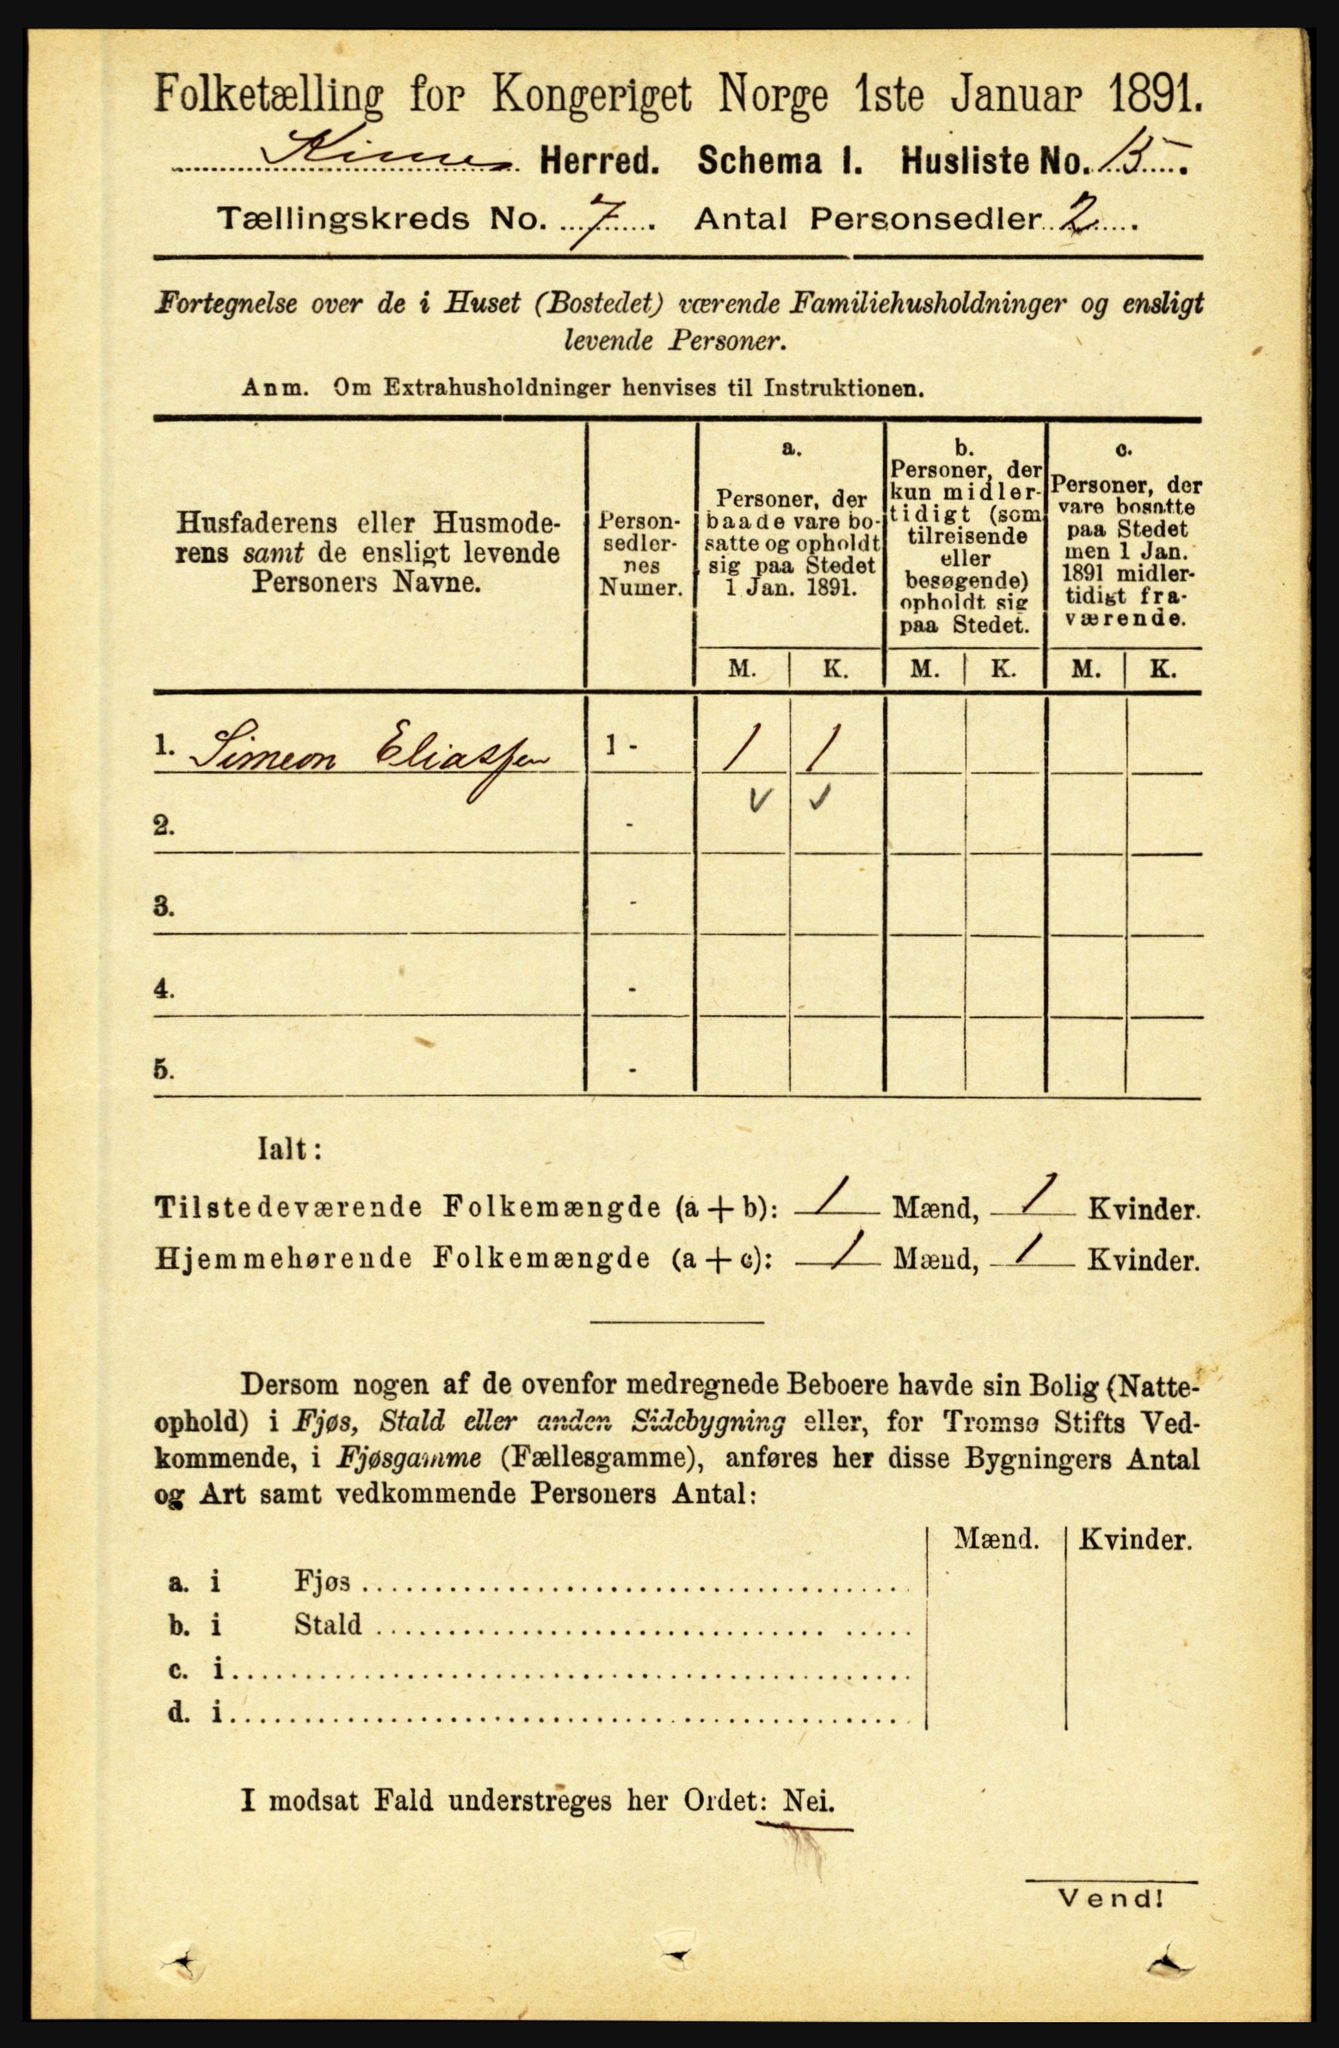 Folketælling for Kongeriget Norge 1ste Januar 1891.
Kinn Herred. Schema I. Husliste No. 15.
Tællingskreds No. 7. Antal Personsedler 2.
Fortegnelse over de i Huset (Bostedet) værende Familiehusholdninger og ensligt
levende Personer.
Anm. Om Extrahusholdninger henvises til Instruktionen.
Husfaderens eller Husmode-
rens samt de ensligt levende
Personers Navne.
Person-
sedler-
nes
Numer.
a.
Personer, der
baade vare bo-
satte og opholdt
sig paa Stedet
1 Jan. 1891.
b.
Personer, der
kun midler-
tidigt (som
tilreisende
eller
besøgende)
opholdt sig
paa Stedet.
c.
Personer, der
vare bosatte
paa Stedet
men 1 Jan.
1891 midler-
tidigt fra-
værende.
M. K. M. K. M. K.
1. Simeon Eliassen 1 - 1 1
2. -
3. -
4. -
5. -
Ialt:
Tilstedeværende Folkemængde (a + b): 1 Mænd, 1 Kvinder.
Hjemmehørende Folkemængde (a + c): 1 Mænd, 1 Kvinder.
Dersom nogen af de ovenfor medregnede Beboere havde sin Bolig (Natte-
ophold) i Fjøs, Stald eller anden Sidebygning eller, for Tromsø Stifts Ved-
kommende, i Fjøsgamme (Fællesgamme), anføres her disse Bygningers Antal
og Art samt vedkommende Personers Antal:
Mænd. Kvinder.
a. i Fjøs
b. i Stald
c. i
d. i
I modsat Fald understreges her Ordet: Nei.
Vend!